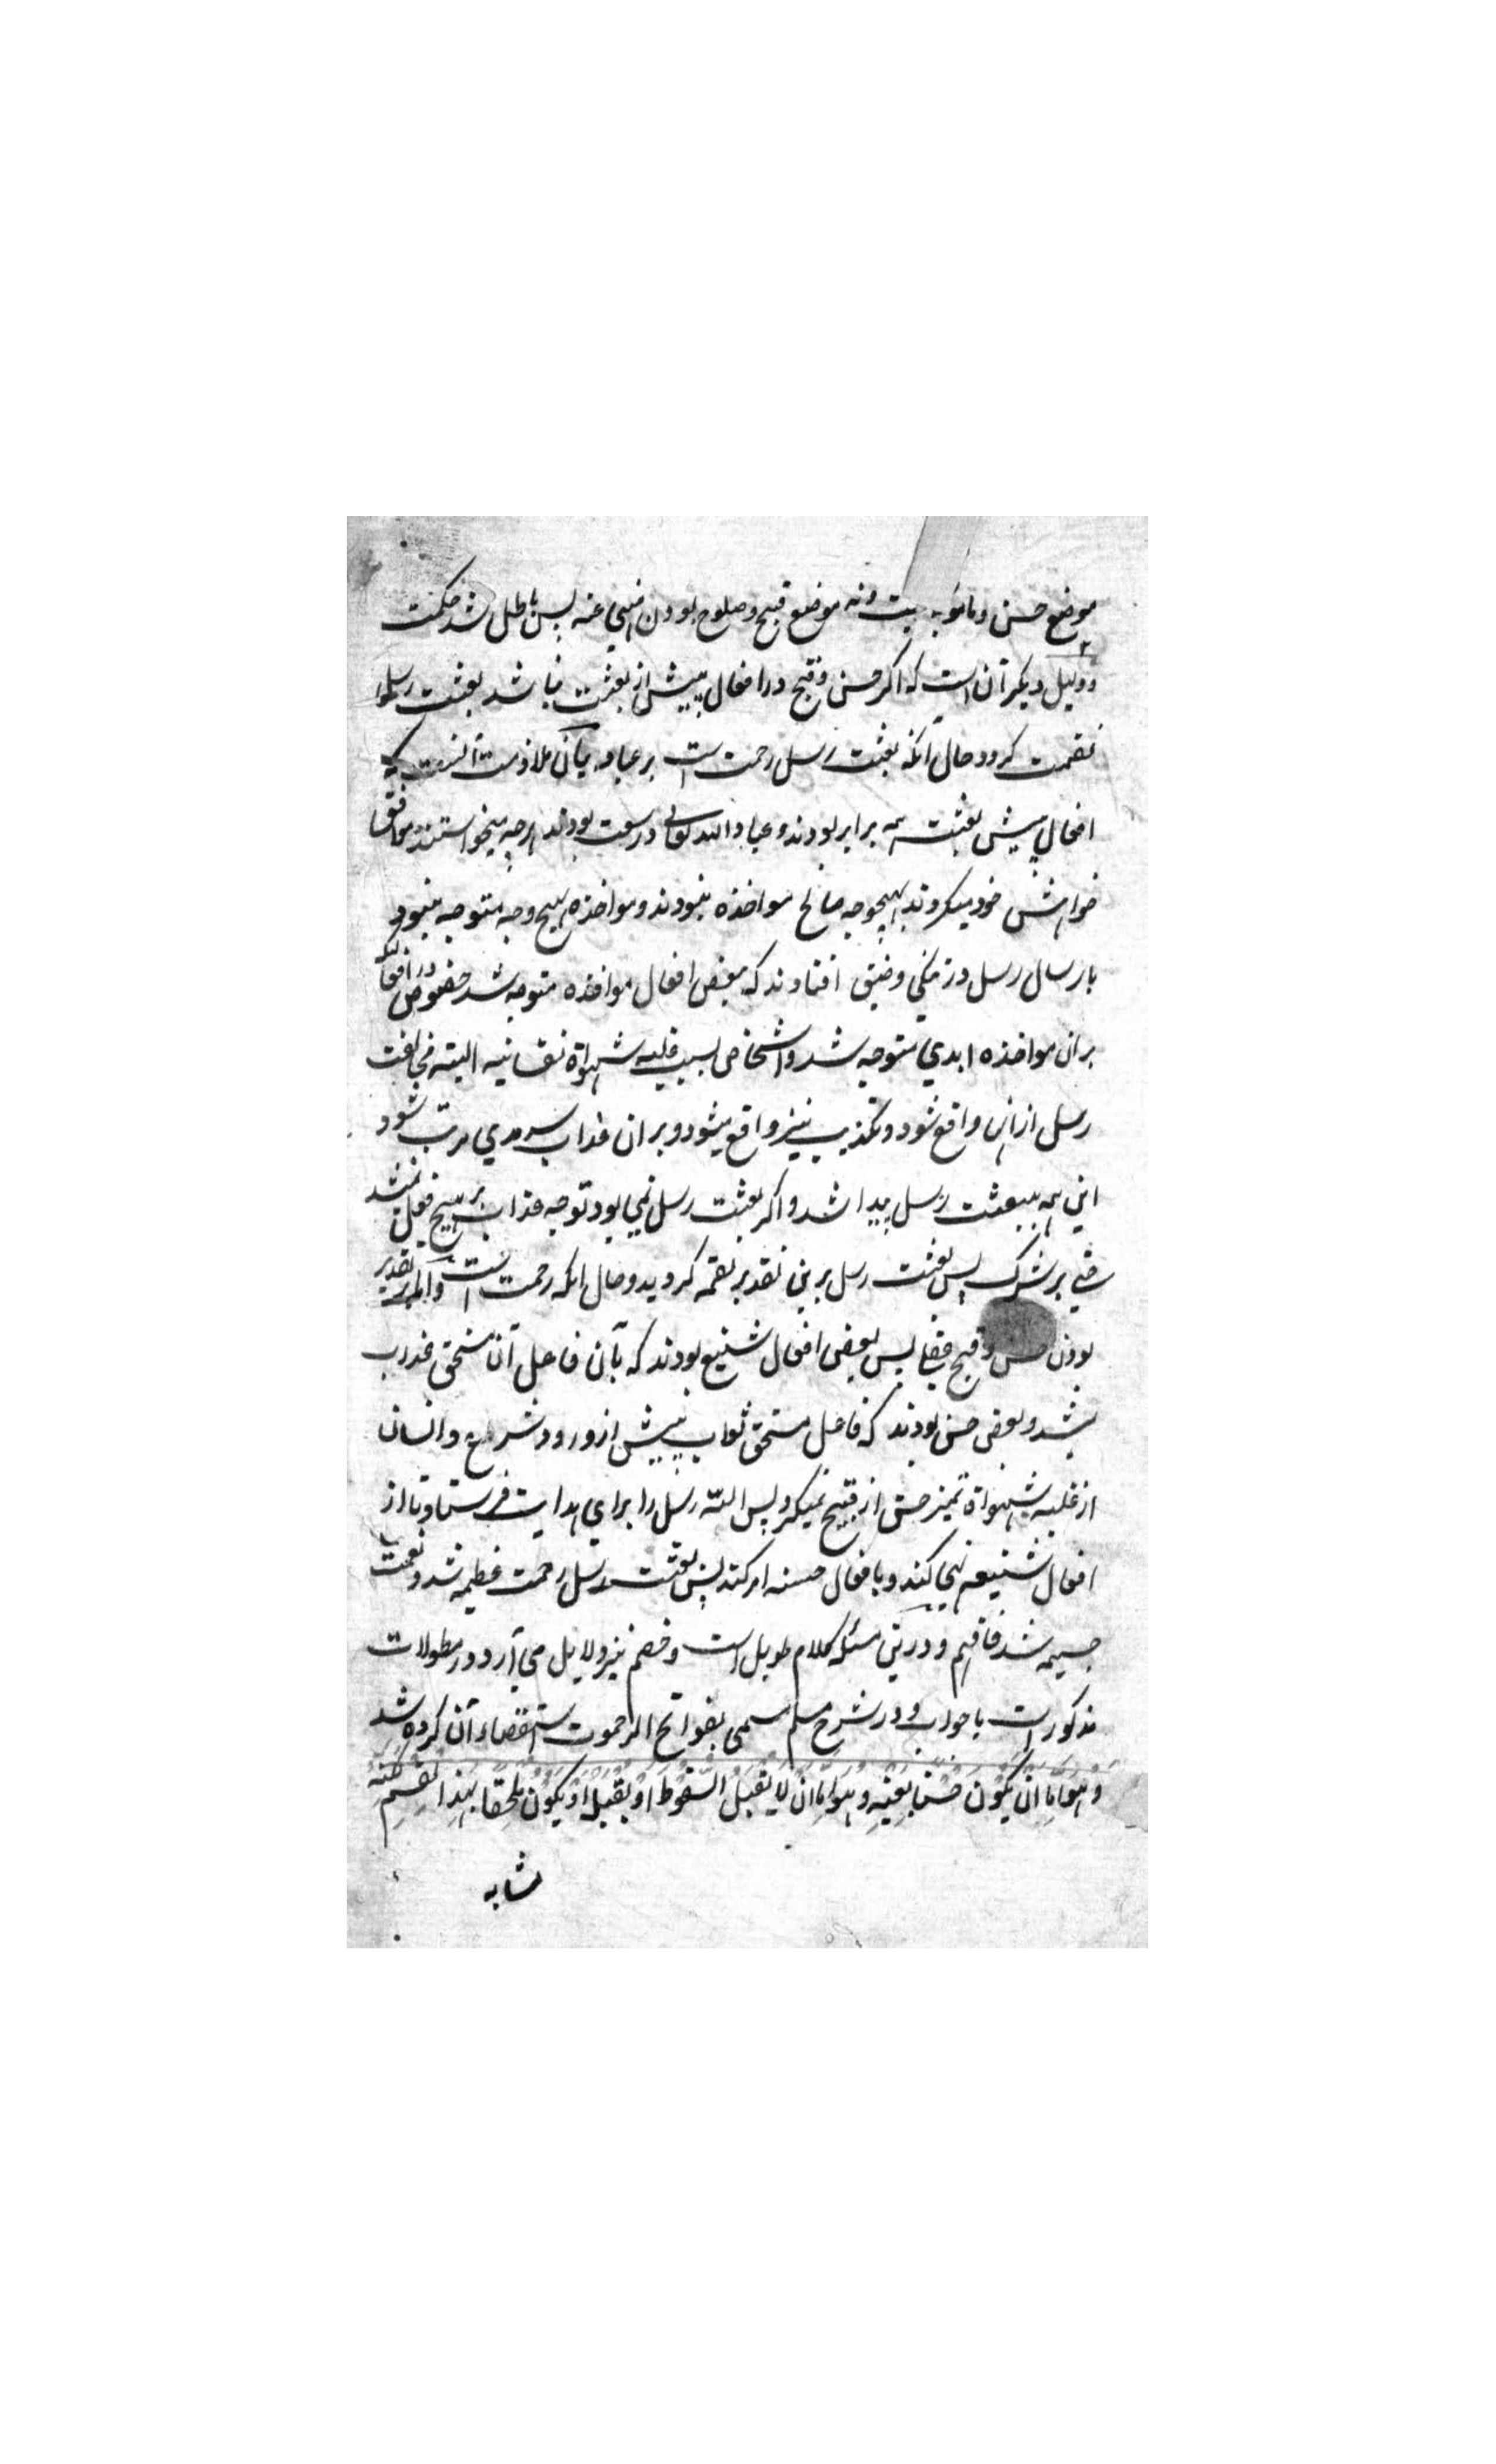 موضع حسن و مامور به نیست و نه موضع قبیح و صلوح بودن منهی عنه پس باطل شد حکمت
و دلیل دیکر آن است که اکر حسن و قبح در افعال پیش از بعثت نباشد بعثت رسل
نقمت کردد حال آنکه بعثت رسل رحمت است بر عباد بیان ملازمت آنست که
افعال پیش بعثت همه برابر بودند و عباد الله تعالی در سعت بودند هرچه میخواستند موافق
خواهش خود میکردند بهیچ وجه صالح مواخذه نبودند و مواخذه بهیچ وجه متوجه نبود
بارسال رسل در تنکی و ضیق افتادند که ببعض افعال مواخذه متوجه شد خصوص در افعالیکه
بران مواخذه ابدی متوجه شد و اشخاص بسبب غلبه شهواة نفسانیه البته مخالفت
رسل ازان واقع شود و تکذیب نیز واقع میشود و بران عذاب سرمدی مرتب شود
این همه ببعثت رسل پیدا شد و اکر بعثت رسل نمی بود توجه عذاب بر هیچ فعل نمیشد
حتی بر شرک پس بعثت رسل برین تقدیر نقمه کردید و حال انکه رحمت است و اما بر تقدیر
بودن حسن و قبح عقلی پس بعضی افعال شنیع بودند که بآن فاعل آن مستحق عذاب
بشد و بعضی حسن بودند که فاعل مستحق ثواب پیش از ورود شرع و انسان
از غلبه شهواة تمیز حسن از قبیح نمیکرد پس الله رسل را برای هدایت فرستاد تا از
افعال شنیعه نهی کند و بافعال حسنه امر کند پس بعثت رسل رحمت عظیمه شد و نعمت
جسیمه شد فافهم و درین مسئله کلام طویل است و خصم نیز دلایل می آرد و در مطولات
مذکور است با جواب و در شرح مسلم مسمی بفواتح الرحموت استقصاء آن کرده شد
وهو اما ان يكون حسنا بعينه وهو اما ان لا يقبل السقوط او يقبله او يكون ملحقا بهذا القسم لكنه
مشابه